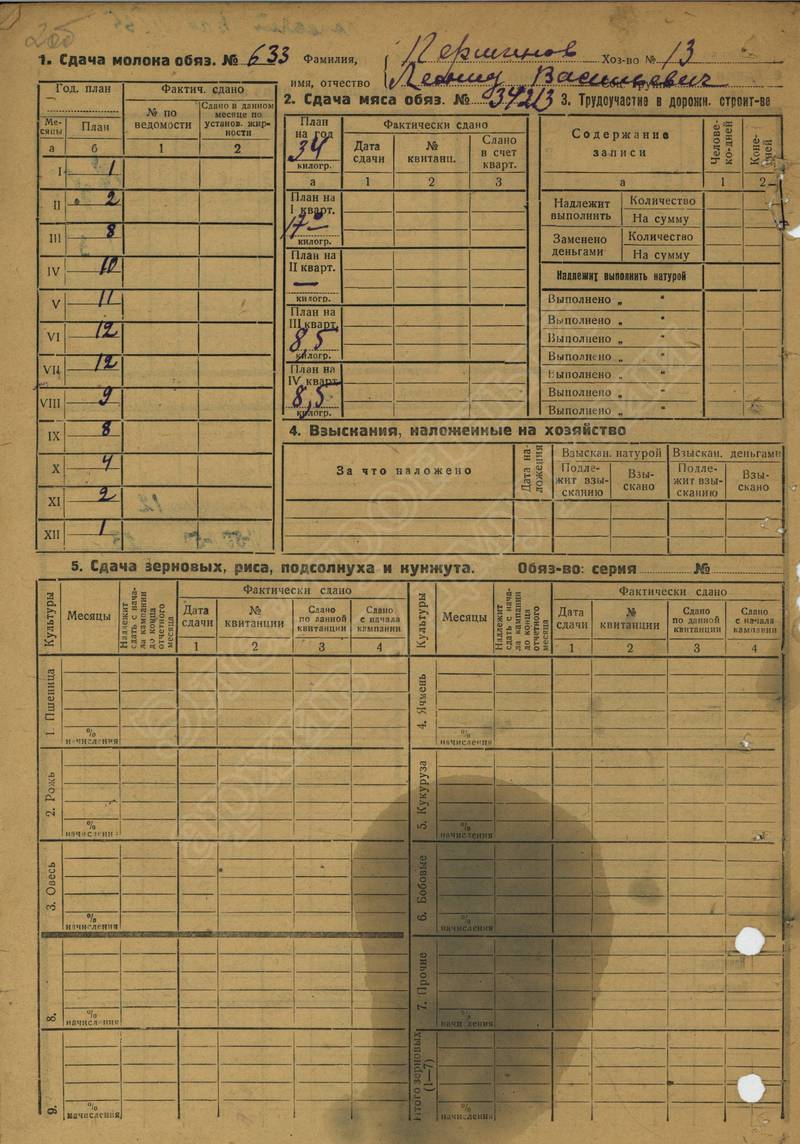 1. Сдача молока обяз. № 633 Фамилия, Першинов Хоз-во № 13
имя, отчество Леонид Васильевич
2. Сдача мяса обяз. № 34213 3. Трудоучастие в дорожн. строит-ве
Год. план Фактич. сдано
Месяцы План № по ведомости Сдано в данном месяце по установ. жирности
а б 1 2
I 1
II 2
III 8
IV 10
V 11
VI 12
VII 12
VIII 9
IX 8
X 4
XI 2
XII 1
План на год 34 килогр. Фактически сдано
Дата сдачи № квитанц. Слано в счет кварт.
а 1 2 3
План на I кварт. 17- килогр.
План на II кварт. — килогр.
План на III кварт. 8,5 килогр.
План на IV кварт. 8,5 килогр.
Содержание записи Челове-ко-дней Коне-дней
а 1 2
Надлежит выполнить Количество
На сумму
Заменено деньгами Количество
На сумму
Надлежит выполнить натурой
Выполнено „ "
Выполнено „ "
Выполнено „ "
Выполнено „ "
Выполнено „ "
Выполнено „ "
Выполнено „ "
4. Взыскания, наложенные на хозяйство
За что наложено Дата наложения Взыскан. натурой Взыскан. деньгами
Подле-жит взы-сканию Взы-скано Подле-жит взы-сканию Взы-скано
5. Сдача зерновых, риса, подсолнуха и кунжута. Обяз-во: серия № 
Культуры Месяцы Надлежит сдать с начала кампании до конца отчетного месяца Фактически сдано
Дата сдачи № квитанции Слано по данной квитанции Слано с начала кампании
1 2 3 4
Культуры Месяцы Надлежит сдать с начала кампании до конца отчетного месяца Фактически сдано
Дата сдачи № квитанции Сдано по данной квитанции Сдано с начала кампании
1 2 3 4
1. Пшеница
% начисления
4. Ячмень
% начисления
2. Рожь
% начисления
5. Кукуруза
% начисления
3. Овесь
% начисления
6. Бобовые
% начисления
8.
% начисления
7. Прочие
% начисления
9.
% начисления
Итого зерновых (1—7)
% начисления